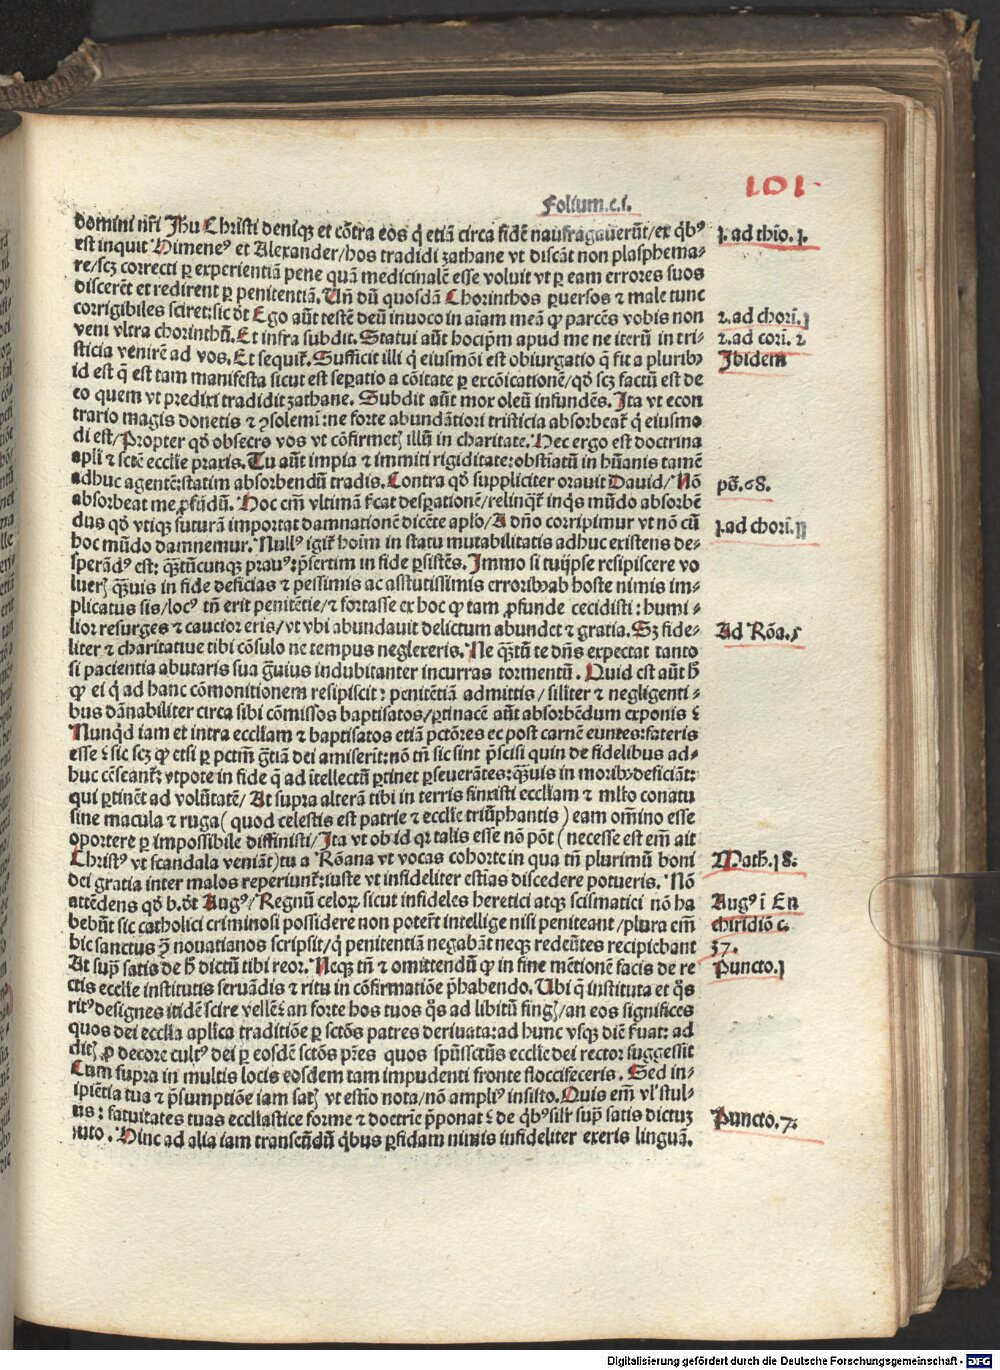 101.
Folium.c.i.
domini nr̄i Jh̄u Christi deniqʒ et cōtra eos q̄ etiā circa fidē naufragauerūt/ex qͥbꝰ
est inquit Himeneꝰ et Alexander/hos tradidi zathane vt discāt non plasphema⸗
re/scʒ correcti ꝑ experientiā pene quā medicinalē esse voluit vt ꝑ eam errores suos
discerēt et redirent ꝑ penitentiā. Un̄ dū quosdā Chorinthos ꝑuersos ⁊ male tunc
corrigibiles sciret: sic ōt Ego aūt testē deū inuoco in aīam meā ꝙ parcēs vobis non
veni vltra chorinthū. Et infra subdit. Statui aūt hocip̄m apud me ne iterū in tri⸗
sticia venirē ad vos. Et sequit᷑. Sufficit illi q̄ eiusmōi est obiurgatio q̄ fit a pluribꝰ
id est q̄ est tam manifesta sicut est seꝑatio a cōitate ꝑ excōicationē/qd̄ scʒ factū est de
eo quem vt predixi tradidit zathane. Subdit aūt mox oleū infundēs. Ita vt econ
trario magis donetis ⁊ ꝯsolemī: ne forte abundātiori tristicia absorbeat᷑ q̄ eiusmo
di est/Propter qd̄ obsecro vos vt cōfirmetꝭ illū in charitate. Hec ergo est doctrina
apl̄i ⁊ scē ecclīe praxis. Tu aūt impia ⁊ immiti rigiditate: obstīatū in hūanis tamē
adhuc agentē: statim absorbendū tradis. Contra qd̄ suppliciter orauit Dauid/Nō
absorbeat me ꝓfūdū. Hoc em̄ vltimā ſic̄at desꝑationē/relinqͥt᷑ inqͣs mūdo absorbē
dus qd̄ vtiqʒ futurā importat damnationē dicēte aplo/A dn̄o corripimur vt nō cū
hoc mūdo damnemur. Nullꝰ igit᷑ hoīm in statu mutabilitatis adhuc existens de⸗
sperādꝰ est: qͣʒtūcunqʒ prauꝰ: p̄sertim in fide ꝑsistēs. Immo si tuijpse resipiscere vo
luerꝭ qͣʒuis in fide deficias ⁊ pessimis ac astutissimis erroribʒ ab hoste nimis im⸗
plicatus sis/locꝰ tn̄ erit penitētie/⁊ fortasse ex hoc ꝙ tam ꝓfunde cecidisti: humi⸗
lior resurges ⁊ caucior eris/vt vbi abundauit delictum abundet ⁊ gratia. Sʒ fide⸗
liter ⁊ charitatiue tibi cōsulo ne tempus neglexeris. Ne qͣʒtū te dn̄s expectat tanto
si pacientia abutaris sua gͣuius indubitanter incurras tormentū. Quid est aūt h̄
ꝙ ei q̄ ad hanc cōmonitionem resipiscit: penitētiā admittis/siliter ⁊ negligenti⸗
bus dānabiliter circa sibi cōmissos baptisatos/ꝑtinacē aūt absorbēdum exponis?
Nunqͥd iam et intra eccl̄iam ⁊ baptisatos etiā pctōres ec post carnē euntes: fateris
esse? sic scʒ ꝙ etsi ꝑ pctm̄ gr̄tiā dei amiserīt: nō tn̄ sic sint p̄scisi quin de fidelibus ad⸗
huc cēseant᷑: vtpote in fide q̄ ad ītellectū ꝑtinet ꝑseuerātes: qͣʒuis in moribʒ deficiāt:
qui ꝑtinēt ad volūtatē/At supra alterā tibi in terris finxisti eccl̄iam ⁊ ml̄to conatu
sine macula ⁊ ruga (quod celestis est patrie ⁊ ecclīe triūphantis) eam om̄ino esse
oportere ꝑ impossibile diffinisti/Ita vt ob id qr talis esse nō pōt (necesse est em̄ ait
Christꝰ vt scandala veniāt) tu a Rōana vt vocas cohorte in qua tn̄ plurimū boni
dei gratia inter malos reperiunt᷑: iuste vt infideliter estīas discedere potueris. Nō
attēdens qd̄ b. ōt Augꝰ/Regnū celoꝝ sicut infideles heretici atqʒ scismatici nō ha
bebūt sic catholici criminosi possidere non poterūt intellige nisi peniteant/plura em̄
hic sanctus ꝯ̄ nouatianos scripsit/q̄ penitentiā negabāt neqʒ redeūtes recipiebant
At supͣ satis de h̄ dictū tibi reor. Neqʒ tn̄ ⁊ omittendū ꝙ in fine mētionē facis de re
ctis ecclīe institutis seruādis ⁊ ritu in cōfirmatiōe p̄habendo. Ubi q̄ instituta et qͦs
ritꝰ designes itidē scire vellē? an forte hos tuos qͦs ad libitū fingꝭ/an eos significes
quos dei ecclīa apl̄ica traditiōe ꝑ sctōs patres deriuata: ad hunc vsqʒ diē ẜuat: ad
ditꝭ ꝓ decore cultꝰ dei ꝑ eosdē sctōs pr̄es quos spūssctūs ecclīe dei rector suggessit
Cum supra in multis locis eosdem tam impudenti fronte floccifeceris. Sed in⸗
ipiētia tua ⁊ p̄sumptiōe iam satꝭ vt estīo nota/nō ampliꝰ insisto. Quis em̄ vl̓ stul⸗
us: fatuitates tuas eccl̄iastice forme ⁊ doctrīe p̄ponat? de qͥbꝰ silr̄ supͣ satis dictuʒ
uto. Hinc ad alia iam transeūdū qͥbus ꝑfidam nimis infideliter exeris linguā.
1. ad thio. 1.
2. ad chorī. 1
2. ad cori. 2
Ibidem
pō. 68.
1. ad chorī. 11
Ad Rōa. 5
Math. 18.
Augꝰ ī En
chiridiō c.
37.
Puncto. 1
Puncto. 7.
Digitalisierung gefördert durch die Deutsche Forschungsgemeinschaft - DFG